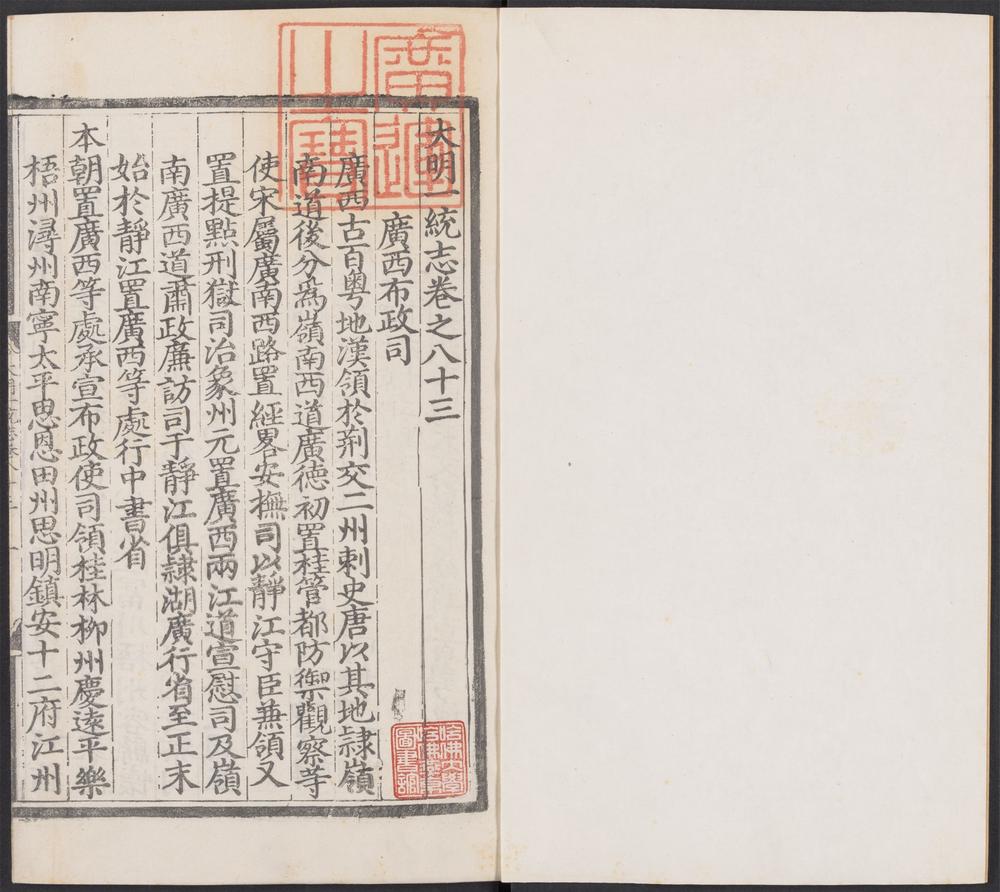 大明一統志卷之八十三
廣西布政司
廣西古百粤地漢領於荆交二州刺史唐以其地隷嶺
南道後分爲嶺南西道廣德初置桂管都防禦觀察等
使宋屬廣南西路置經畧安撫司以靜江守臣兼領又
置提點刑獄司治象州元置廣西兩江道宣慰司及嶺
南廣西道肅政廉訪司于靜江俱隷湖廣行省至正末
始於靜江置廣西等處行中書省
本朝置廣西等處承宣布政使司領桂林柳州慶遠平樂
梧州潯州南寧太平思恩田州思明鎮安十二府江州
廣運之寶
哈佛大學哈佛燕京圖書館